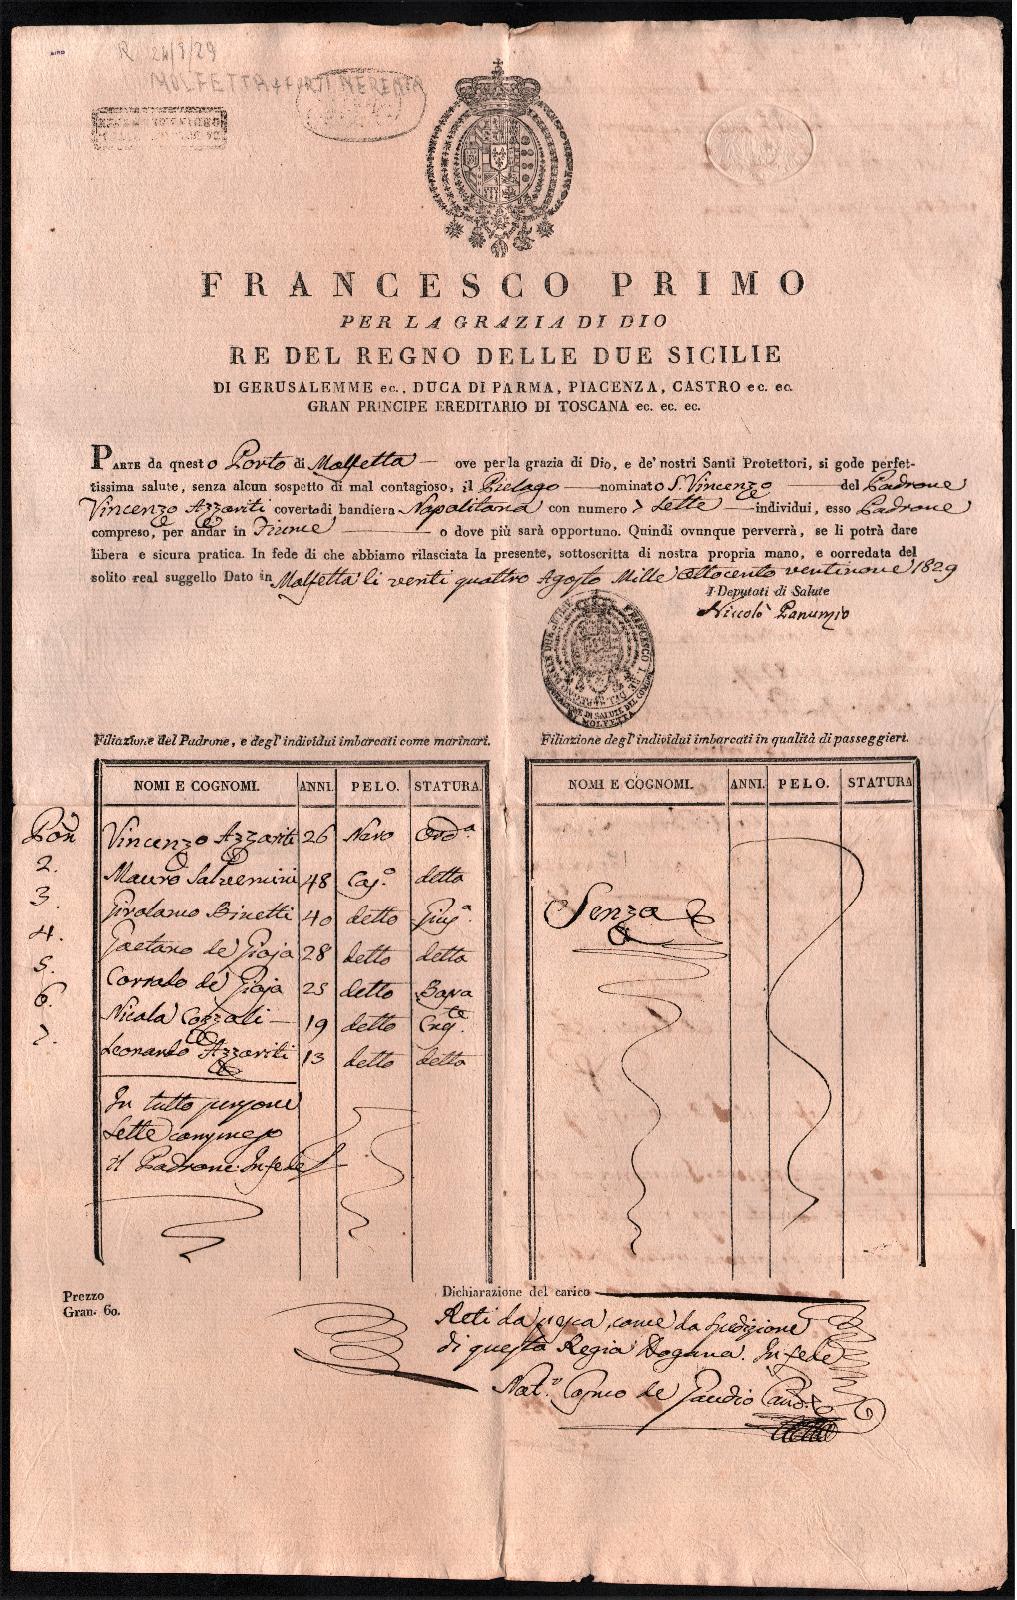 R 24/8/29
MOLFETTA
FRANCESCO PRIMO
PER LA GRAZIA DI DIO
RE DEL REGNO DELLE DUE SICILIE
DI GERUSALEMME ec., DUCA DI PARMA, PIACENZA, CASTRO ec. ec.
GRAN PRINCIPE EREDITARIO DI TOSCANA ec. ec. ec.
PARTE da questo Porto di Molfetta — ove per la grazia di Dio, e de' nostri Santi Protettori, si gode perfet-
tissima salute, senza alcun sospetto di mal contagioso, il Pielago — nominato S. Vincenzo — del Padrone
Vincenzo Azzariti coverto di bandiera Napolitana con numero 7 Sette — individui, esso Padrone
compreso, per andar in Fiume — o dove più sarà opportuno. Quindi ovunque perverrà, se li potrà dare
libera e sicura pratica. In fede di che abbiamo rilasciata la presente, sottoscritta di nostra propria mano, e corredata del
solito real suggello Dato in Molfetta li venti quattro Agosto Mille Ottocento ventinove 1829
I Deputati di Salute
Niccolò Panunzio
FRANCESCO I RE DEL REGNO DELLE DUE SICILIE
DI SALUTE DEL COMUNE
DI MOLFETTA
Filiazione del Padrone, e degl' individui imbarcati come marinari.
NOMI E COGNOMI. ANNI. PELO. STATURA.
Pon̄ Vincenzo Azzariti 26 Nero Ord.ª
2. Mauro Salvemini 48 Cas.º detta
3. Girolamo Binetti 40 detto Gius.ª
4. Gaetano de Gioja 28 detto detta
5. Corrado de Gioja 25 detto Bassa
6. Nicola Cozzoli — 19 detto
7. Leonardo Azzariti 13 detto detta
In tutto persone
Sette compreso
il Padrone. In fede
Filiazione degl' individui imbarcati in qualità di passeggieri.
NOMI E COGNOMI. ANNI. PELO. STATURA
Senza
Prezzo
Gran. 60.
Dichiarazione del carico
Reti da pesca, come da spedizione
di questa Regia Dogana. In fede
Not.º Cosmo de Gaudio Canc.